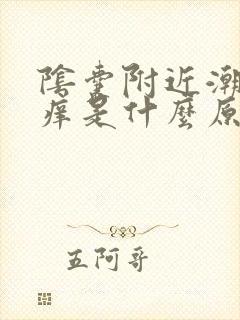 陰囊附近潮
痒是什麼原
五阿哥